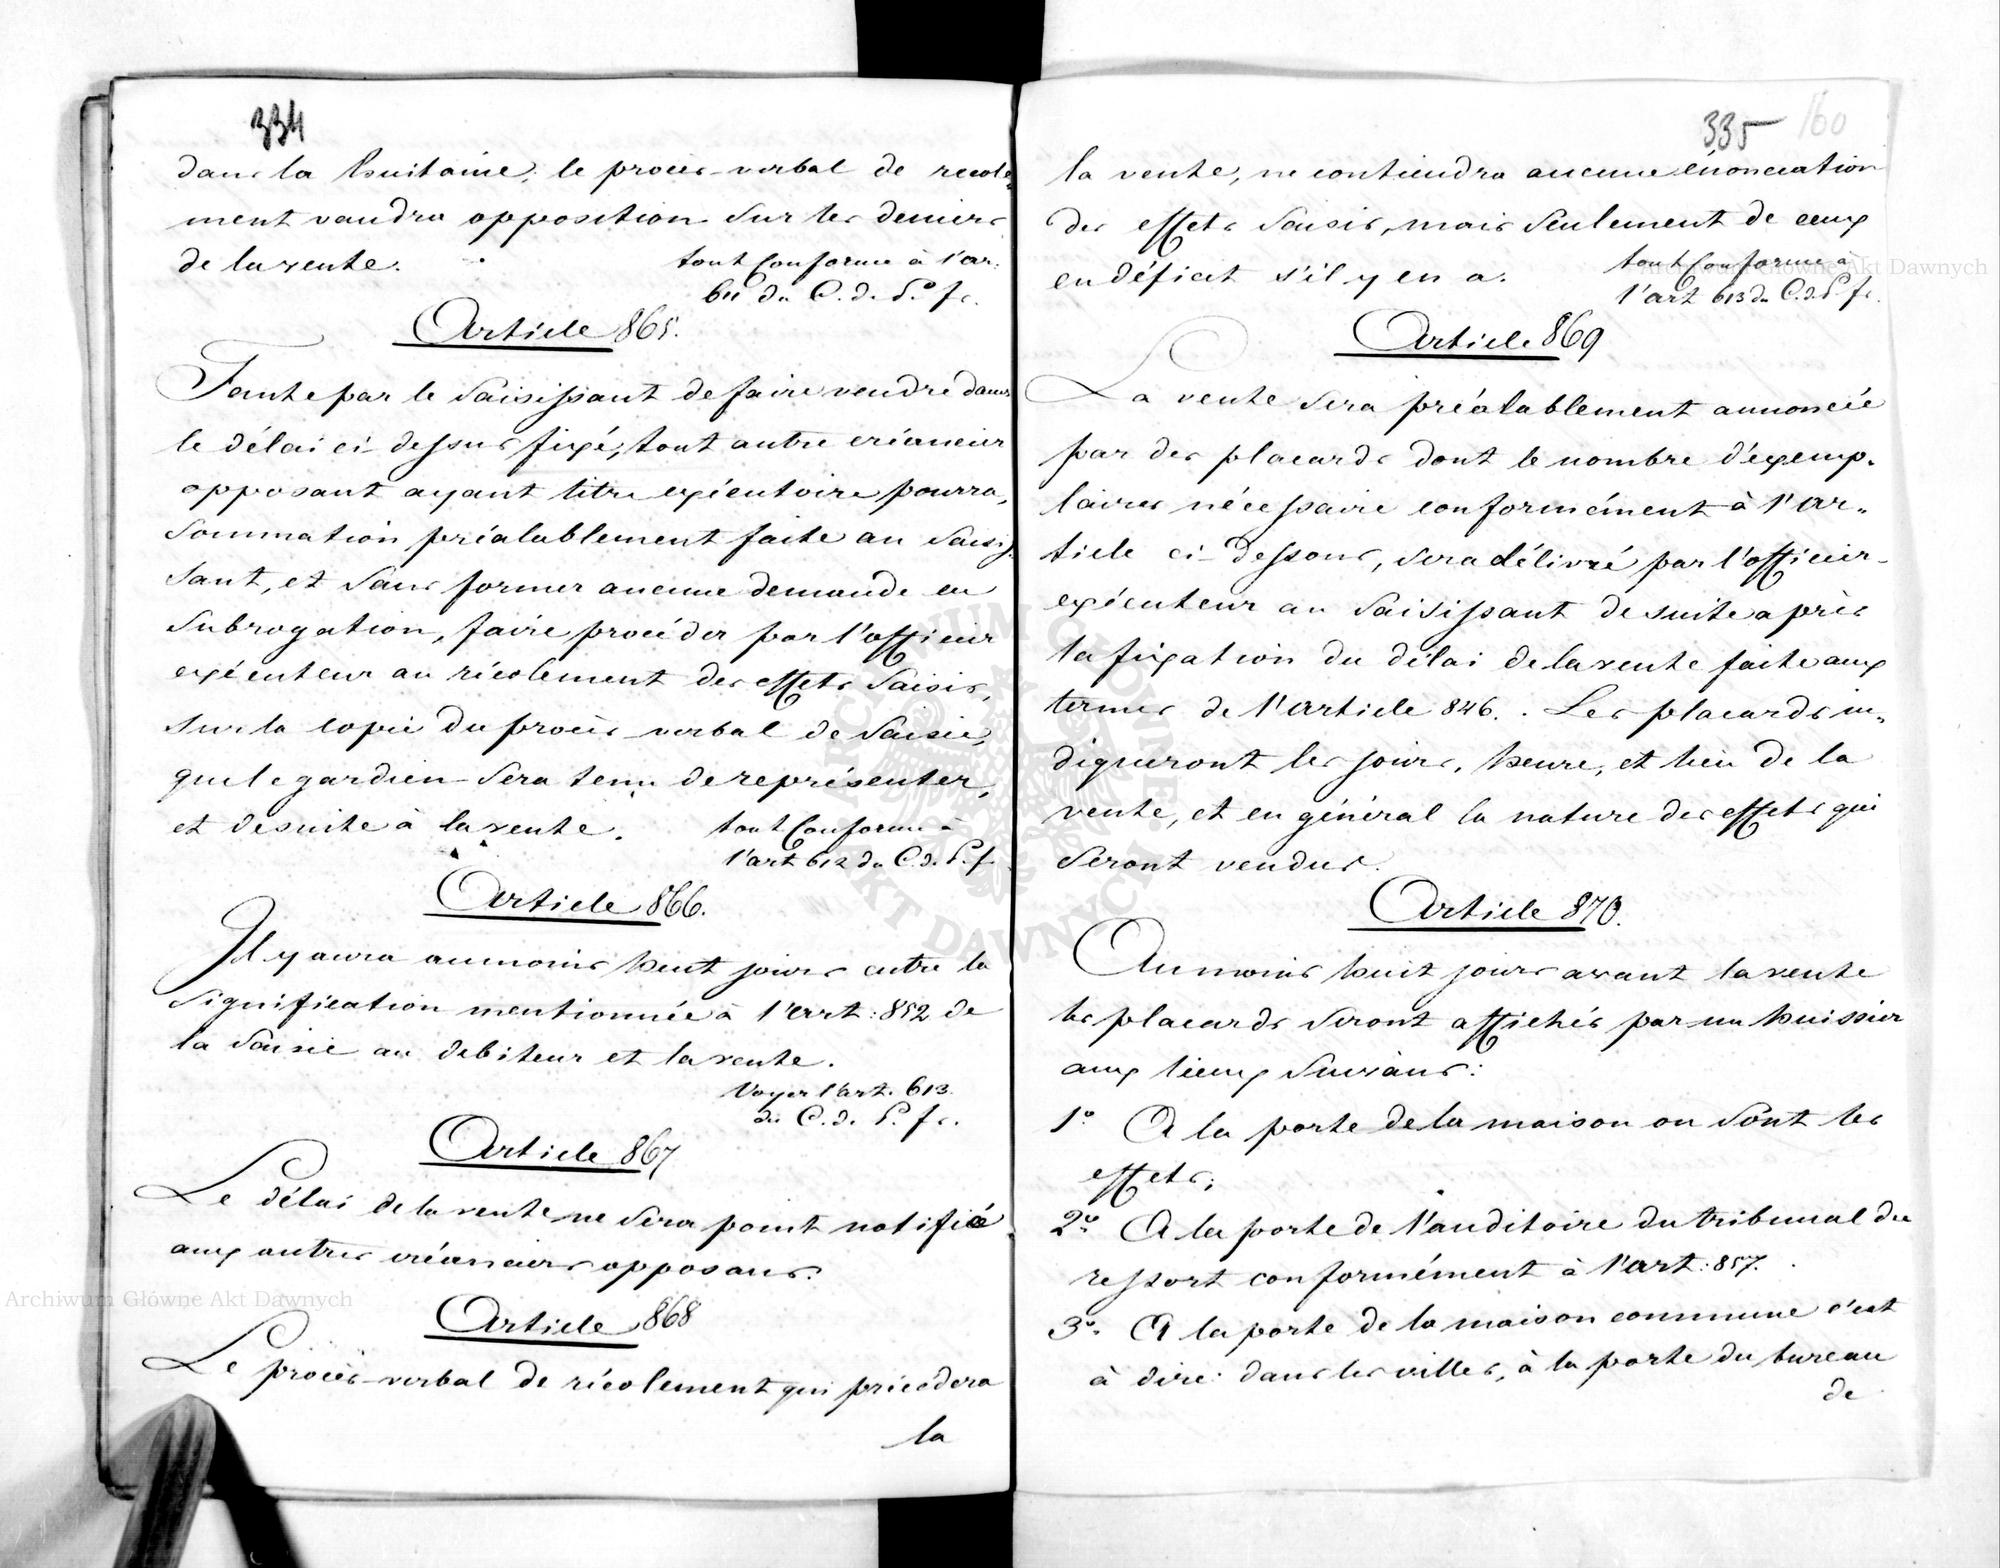 334
dans la huitaine; le procès-verbal de recole-
ment vaudra opposition sur les deniers
de la vente.
tout conforme à l'ar:
611 du C. d. P. fr.
Article 865.
Faute par le saisissant de faire vendre dans
le délai ci-dessus fixé, tout autre créancier
opposant ayant titre exécutoire pourra,
sommation préalablement faite au saisis-
sant, et sans former aucune demande en
subrogation, faire procéder par l'officier
exécuteur au récolement des effets saisis,
sur la copie du procès-verbal de saisie,
que le gardien sera tenu de représenter,
et desuite à la vente.
tout conforme à
l'art 612 du C. d. P. f.
Article 866.
Il y aura aumoins huit jours entre la
signification mentionnée à l'art: 852 de
la saisie au debiteur et la vente.
Voyer l'art. 613.
du C. d. P. fr.
Article 867
Le délai de la vente ne sera point notifié
aux autres créanciers opposans.
Article 868
Le procès-verbal de récolement qui précédera
la
335
160
la vente, ne contiendra aucune énonciation
des effets saisis, mais seulement de ceux
en déficit s'il y en a.
tout conforme à
l'art 613 du C. d. P. fr.
Article 869
La vente sera préalablement annoncée
par des placards dont le nombre d'exemp-
laires nécessaire conformément à l'ar-
ticle ci-dessous, sera délivré par l'officier
exécuteur au saisissant desuite après
la fixation du délai de la vente faite aux
termes de l'article 846. Les placards in-
diqueront les jours, heure, et lieu de la
vente, et en général la nature des effets qui
seront vendus.
Article 870.
Aumoins huit jours avant la vente
les placards seront affichés par un huissier
aux lieux suivans:
1° A la porte de la maison ou sont les
effets;
2° A la porte de l'auditoire du tribunal du
ressort conformément à l'art: 857.
3° A la porte de la maison commune c'est
à dire: dans les villes, à la porte du bureau
de
Archiwum Główne Akt Dawnych
Archiwum Główne Akt Dawnych
ARCHIWUM GŁÓWNE AKT DAWNYCH